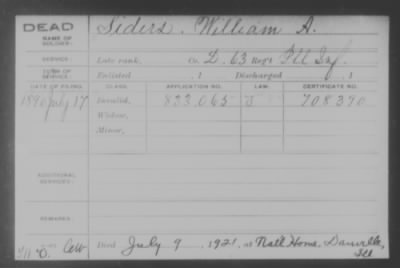 DEAD
NAME OF SOLDIER:
Siders, William A.
SERVICE:
Late rank, Co. D, 63 Reg't Ill Inf.
TERM OF SERVICE:
Enlisted , 1 Discharged , 1
DATE OF FILING. CLASS. APPLICATION NO. LAW. CERTIFICATE NO.
1890 July 17 Invalid, 833,065 708390
Widow,
Minor,
ADDITIONAL SERVICES:
REMARKS:
Died July 9, 1921, at Natl Home, Danville, Ill